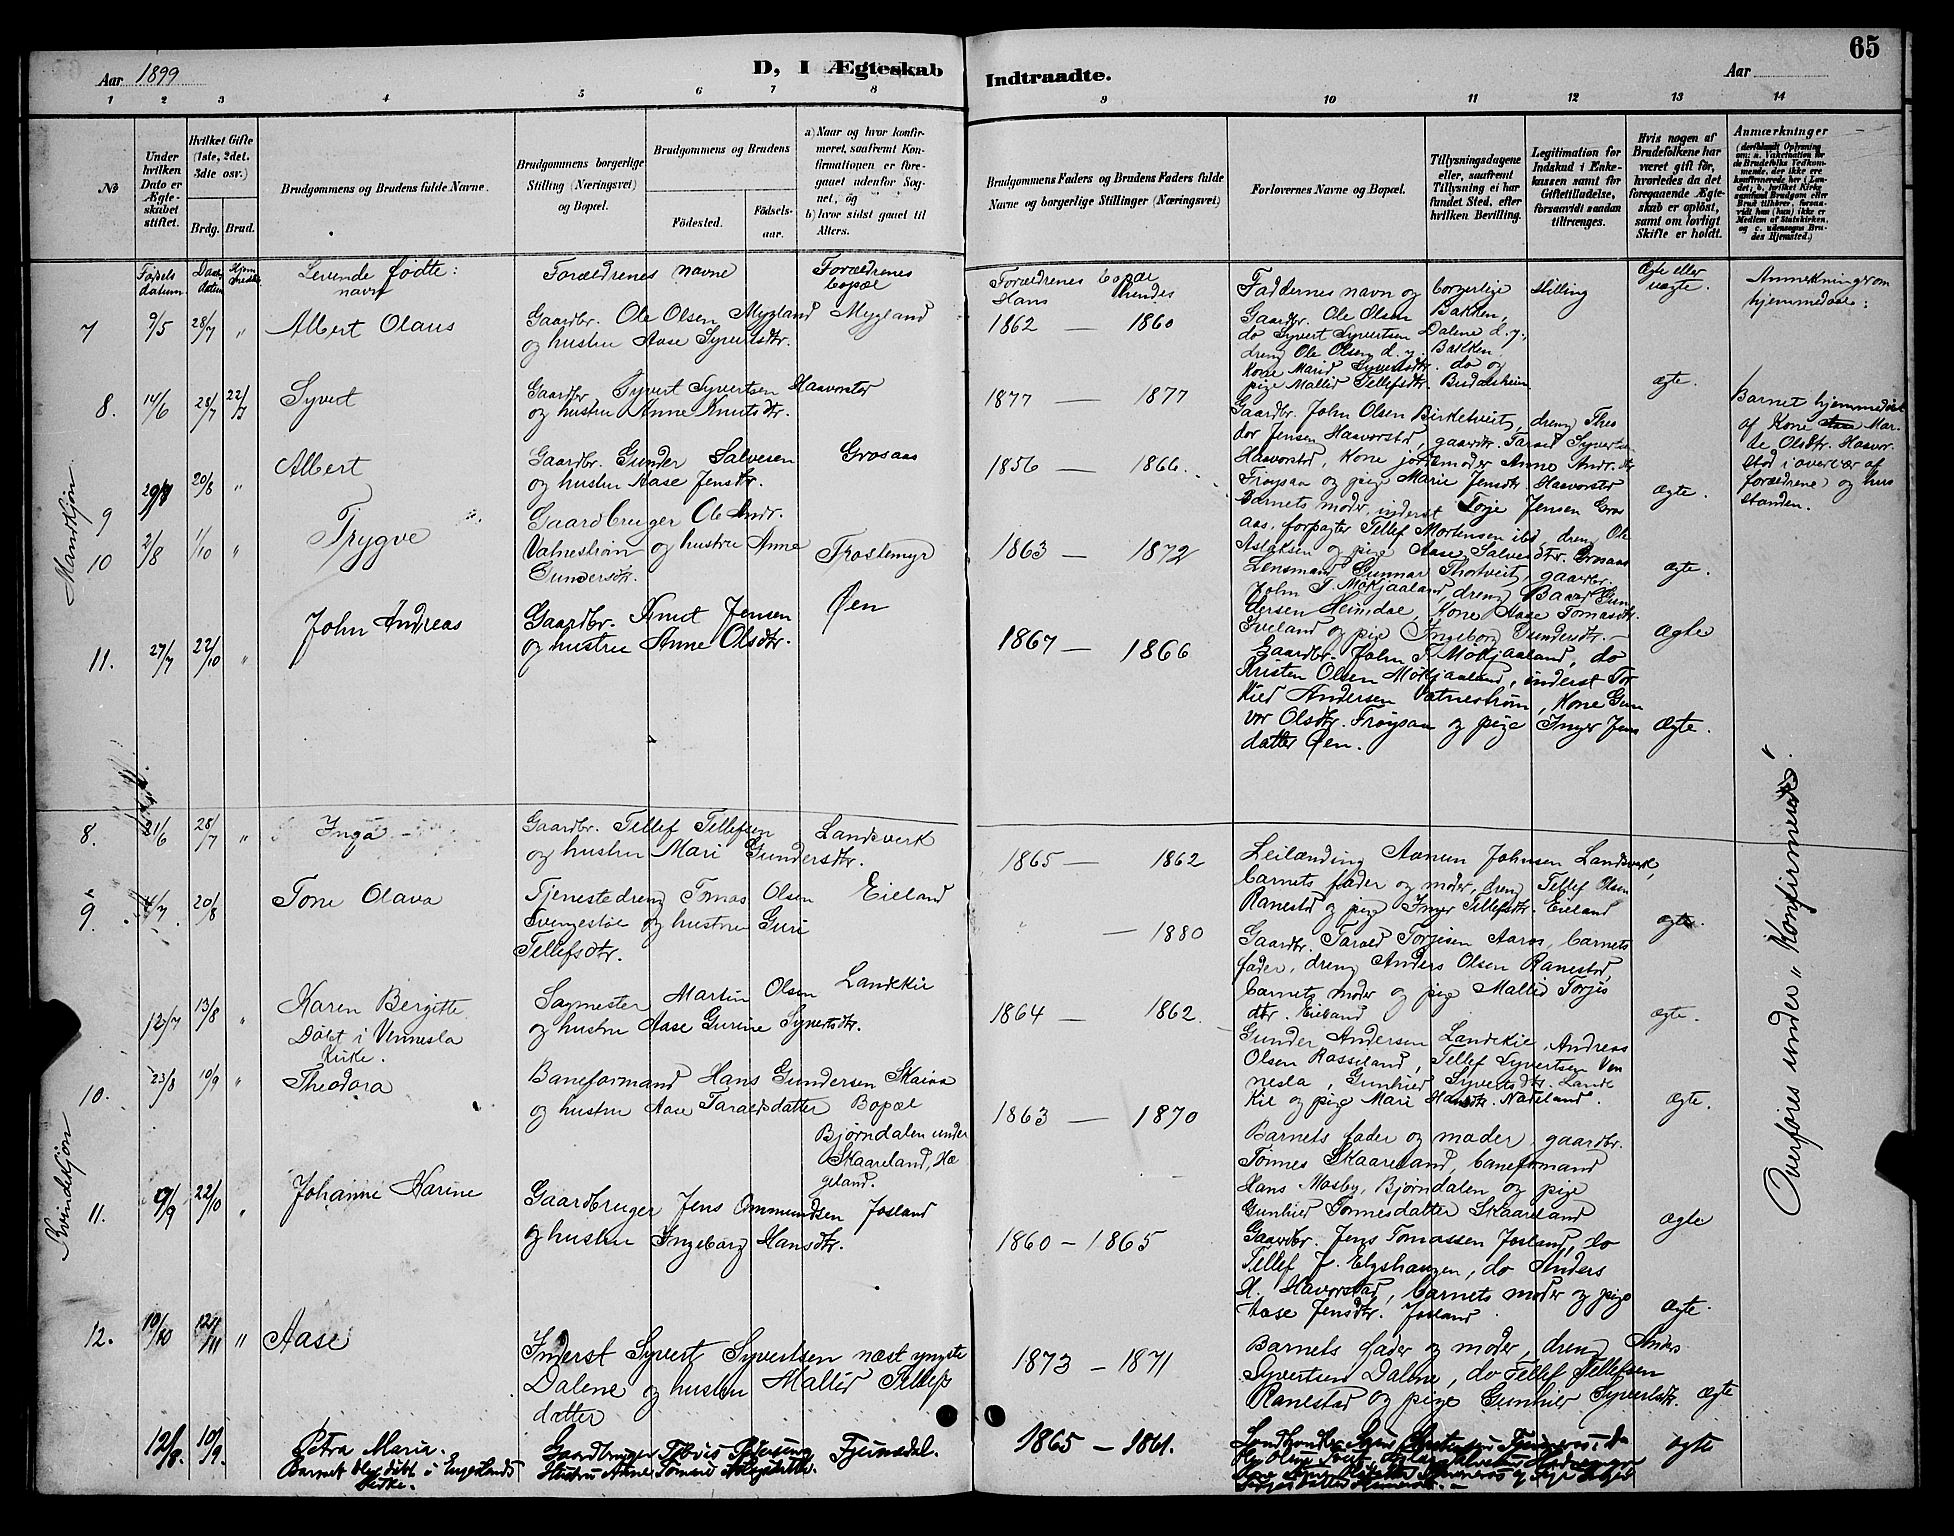 65
Aar 1899
D, I Ægteskab
Indtraadte.
Aar
1 2 3 4 5 6 7 8 9 10 11 12 13 14
No
Under hvilken Dato er Ægteskabet stiftet.
Hvilket Gifte (1ste, 2det. 3die osv.)
Brdg. Brud.
Brudgommens og Brudens fulde Navne.
Brudgommens borgerlige Stilling (Næringsvei) og Bopæl.
Brudgommens og Brudens
Fødested.
Fødselsaar.
a) Naar og hvor konfirmeret, saafremt Konfirmationen er foregaaet udenfor Sognet, og
b) hvor sidst gaaet til Alters.
Brudgommens Faders og Brudens Faders fulde Navne og borgerlige Stillinger (Næringsvei)
Forlovernes Navne og Bopæl.
Tillysningsdagene eller, saafremt Tillysning ei har fundet Sted, efter hvilken Bevilling.
Legitimation for Indskud i Enkekassen samt for Giftetilladelse, forsaavidt saadan tiltrænges.
Hvis nogen af Brudefolkene har været gift før, hvorledes da det foregaaende Ægteskab er opløst, samt om lovligt Skifte er holdt.
Anmærkninger
Levende fødte: navn
Forældrenes navne
Forældrenes bopæl
Fødsels datum
Forældrenes bopæl
Hans hendes
Faddernes navn og borgerlige stilling
Ægte eller uægte.
Anmerkninger om hjemmedaab:
Mandkjøn
7 9/5 28/7 " Albert Olaus
Gaardbr. Ole Olsen Mygland Mygland
og hustru Aase Syvertsdtr.
1862 — 1860
Gaardbr. Ole Olsen Bakken,
do Syvert Syvertsen Dalene d. y.,
dreng Ole Olsen d. y. Bakken,
kone Marid Syvertsdtr. do og
pige Mallid Tellefsdtr.
ægte.
8. 14/6 28/7 22/7 Syvert
Gaardbr Syvert Syvertsen Haavorstad
og hustru Anne Knutsdtr.
1877 — 1877
Gaardbr. John Olsen Birketveit, dreng Theo
dor Jensen Haavorstad, gaardbr. Tarald Syvertsen
Haavorstad, kone jordemoder Anne Andr. dtr
Frøysaa og pige Marie Jensdtr Haavorstad
ægte.
Barnet hjemmedøbt
af Kone Mar-
te Olsdtr. Haavor
stad i overvær af
forældrene og hus
standen.
9 20/8 " Albert
Gaardbr. Gunder Salvesen Grosaas
og hustru Aase Jensdtr.
1856 — 1866.
Barnets moder, inderst Torje Jensen Gros
aas, forpagter Tellef Mortensen ibd, dreng Ole
Aslaksen og pige Aase Salvesdtr. Grosaas
ægte.
10 2/8 1/10 " Trygve
Gaardbruger Ole Andr.
Vatnestrøm og hustru Anne Frostemyr
Gundersdtr.
1863 — 1872
Lensmand Gunnar Thortveit, gaardbr.
John T. Mokjaaland, dreng Baard Gun
dersen Heimdal, kone Aase Tomasdtr.
Iveland og pige Ingeborg Gundersdtr.
ægte
11. 27/7 22/10 " John Andreas
Gaardbr. Knut Jensen Øen
og hustru Anne Olsdtr.
1867 — 1866
Gaardbr. John T. Mokjaaland, do
Kristen Olsen Mokjaaland, inderst Tor
kild Andersen Vatnestrøm, kone Gun
vor Olsdtr. Frøysaa og pige Inger Jens
datter Øen.
ægte.
Kvindekjøn
8. 21/6 28/7 " Inga
Gaardbr. Tellef Tellefsen Landsverk
og hustru Mari Gundersdtr.
1865 — 1862
Leilænding Aanen Johnsen Landsverk,
barnets fader og moder, dreng Tellef Olsen
Ranestad og pige Inger Tellefsdtr. Eieland
ægte.
9. 4/7 20/8 Tone Olava
Tjenestedreng Tomas Olsen Eieland
Svengestøl og hustru Guri
Tellefsdtr.
" — 1880
Gaardbr. Tarald Torjesen Aaros, barnets
fader, dreng Anders Olsen Ranestad,
barnets moder og pige Mallid Torjes
dtr. Eieland
ægte.
12/7 13/8 " Karen Bergitte
Døbt i Vennesla
Kirke.
Sagmester Martin Olsen Landekil
og hustru Aase Gurine Syvertsdtr.
1864 — 1862.
Gunder Andersen Landekil, Andreas
Olsen Rosseland, Tellef Syvertsen Ven
nesla, Gunhild Syvertsdtr. Lande
kil og pige Mari Hansdtr. Nadeland.
ægte.
10. 23/8 10/9 " Theodora
Baneformand Hans Gundersen Skaiaa
og hustru Aase Taraldsdatter Bopæl
Bjørndalen under
Skaareland, Hæ
geland.
1863 — 1870
Barnets fader og moder, gaardbr.
Tønnes Skaareland, baneformand
Hans Mosby, Bjørndalen og pige
Gunhild Tønnesdatter Skaareland
ægte
11. 9/9 22/10 " Johanne Karine
Gaardbruger Jens Ommundsen Josland
og hustru Ingeborg Hansdtr.
1860 - 1865
Gaardbr. Jens Tomassen Josland, do
Tellef J. Elgshaugen, do Anders
H. Haavorstad, barnets moder og pige
Aase Jensdtr. Josland
ægte.
12. 10/10 12/11 " Aase
Inderst Syvert Syvertsen næst yngste
Dalene og hustru Mallid Tellefs
datter
1873 - 1871
Barnets fader og moder, dreng Anders
Syvertsen Dalene, do Tellef Tellefsen
Ranestad og pige Gunhild Syvertsdtr.
ægte
12/8. 10/9. Petra Maria.
Barnet blev døbt i Engeslands
Kirke.
Gaardbruger
Hustru Anne Tomine
1865 - 1861.
ægte
Overføres under "Konfirmerede".